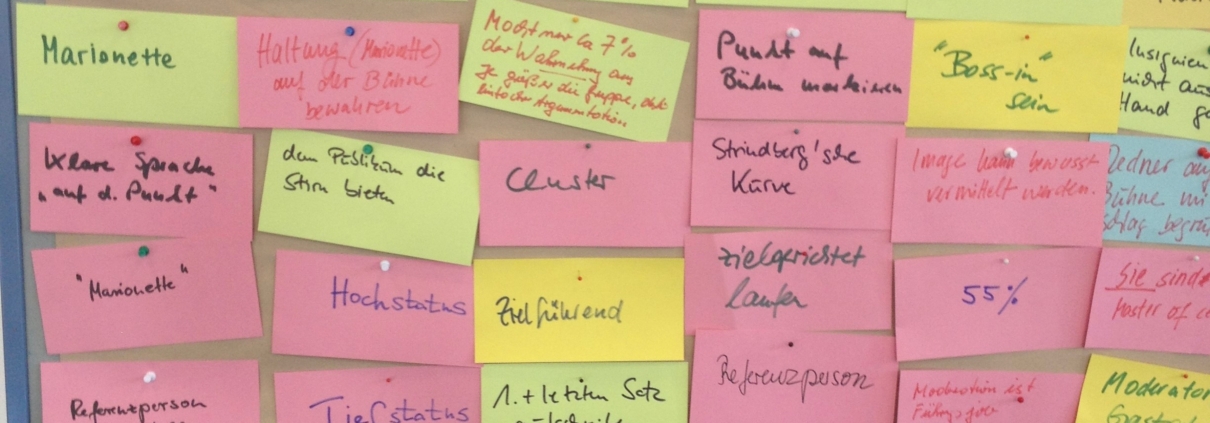 Marionette
Haltung (Marionette)
auf der Bühne
bewahren
Macht nur ca 7%
der Wahrnehmung aus
Je größer die Gruppe, desto
einfacher Argumentation
Punkt auf
Bühne markieren
"Boss-in"
sein
Insignien
nicht aus
Hand
Klare Sprache
"auf d. Punkt"
dem Publikum die
Stirn bieten
Cluster
Strindberg'sche
Kurve
Image kann bewusst
vermittelt werden.
Redner
Bühne
"Marionette"
Hochstatus
Zielführend
zielgerichtet
laufen
55%
Sie sind
Master of
Referenzperson
Tiefstatus
1. + letzten Satz
Referenzperson
Moderation ist
Moderator